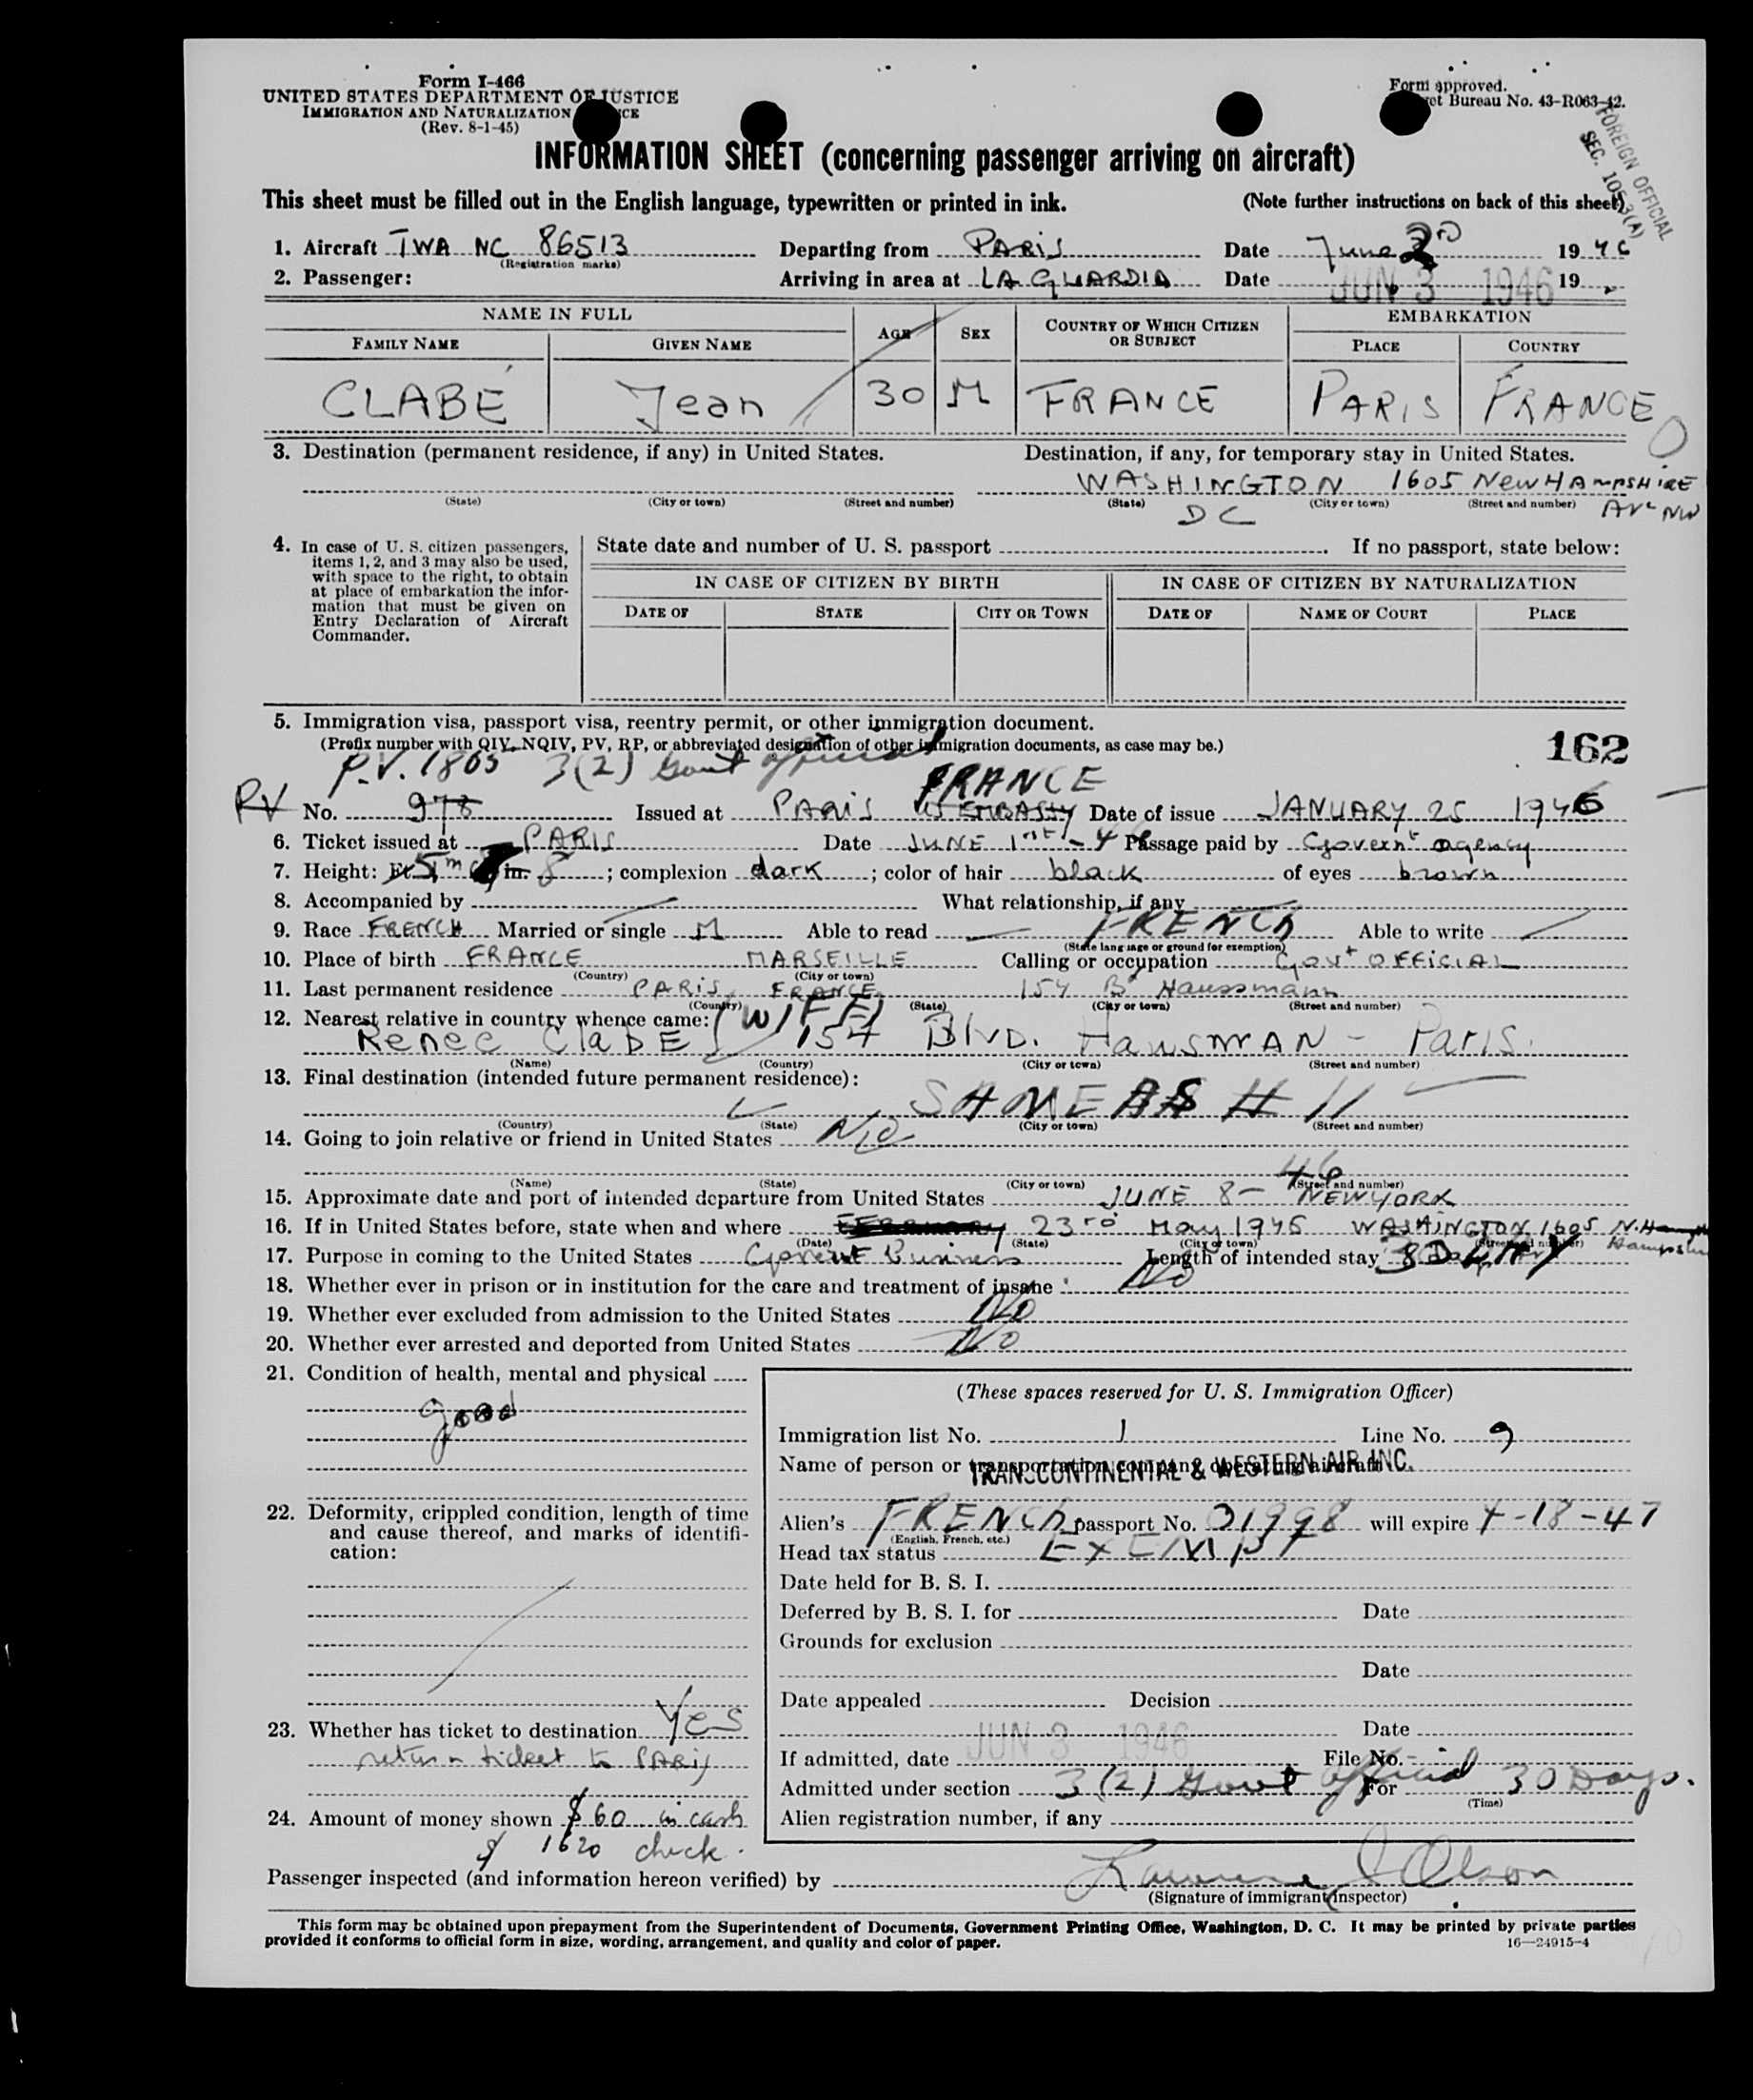 Form I-466
UNITED STATES DEPARTMENT OF JUSTICE
IMMIGRATION AND NATURALIZATION
(Rev. 8-1-45)
Form approved.
Bureau No. 43-R063-42.
FOREIGN OFFICIAL
SEC. 10
INFORMATION SHEET (concerning passenger arriving on aircraft)
This sheet must be filled out in the English language, typewritten or printed in ink. (Note further instructions on back of this sheet)
1. Aircraft TWA NC 86513 Departing from PARIS Date June 19 46
(Registration marks)
2. Passenger: Arriving in area at LA GUARDIA Date JUN 3 1946 19
NAME IN FULL AGE SEX COUNTRY OF WHICH CITIZEN OR SUBJECT EMBARKATION
FAMILY NAME GIVEN NAME PLACE COUNTRY
CLABÉ Jean 30 M FRANCE PARIS FRANCE
3. Destination (permanent residence, if any) in United States. Destination, if any, for temporary stay in United States.
WASHINGTON 1605 NEW HAMPSHIRE
(State) (City or town) (Street and number) (State) (City or town) (Street and number)
DC AVE NW
4. In case of U. S. citizen passengers, items 1, 2, and 3 may also be used, with space to the right, to obtain at place of embarkation the information that must be given on Entry Declaration of Aircraft Commander.
State date and number of U. S. passport . If no passport, state below:
IN CASE OF CITIZEN BY BIRTH IN CASE OF CITIZEN BY NATURALIZATION
DATE OF STATE CITY OR TOWN DATE OF NAME OF COURT PLACE
5. Immigration visa, passport visa, reentry permit, or other immigration document.
(Prefix number with QIV, NQIV, PV, RP, or abbreviated designation of other immigration documents, as case may be.)
162
P.V. 1805 3(2) Govt official
FRANCE
PV No. 978 Issued at PARIS US EMBASSY Date of issue JANUARY 25 1946
6. Ticket issued at PARIS Date JUNE 1 Passage paid by Governt agency
7. Height: Ft. 5 in. 8; complexion dark; color of hair black of eyes brown
8. Accompanied by What relationship, if any
9. Race FRENCH Married or single M Able to read FRENCH Able to write
(State language or ground for exemption)
10. Place of birth FRANCE MARSEILLE Calling or occupation GOVt OFFICIAL
(Country) (City or town)
11. Last permanent residence PARIS, FRANCE 154 Bd Haussmann
(Country) (State) (City or town) (Street and number)
12. Nearest relative in country whence came: (WIFE)
Renee ClabE 154 Blvd. HausmAN - Paris.
(Name) (Country) (City or town) (Street and number)
13. Final destination (intended future permanent residence):
SAME AS # 11
(Country) (State) (City or town) (Street and number)
14. Going to join relative or friend in United States No
(Name) (State) (City or town) (Street and number)
46
15. Approximate date and port of intended departure from United States JUNE 8 - NEWYORK
16. If in United States before, state when and where 23rd May 1945 WASHINGTON 1605 N.
(Date) (State) (City or town) (Street and number)
17. Purpose in coming to the United States Business Length of intended stay
18. Whether ever in prison or in institution for the care and treatment of insane No
19. Whether ever excluded from admission to the United States No
20. Whether ever arrested and deported from United States No
21. Condition of health, mental and physical
good
22. Deformity, crippled condition, length of time and cause thereof, and marks of identification:
23. Whether has ticket to destination Yes
return ticket to PARIS
24. Amount of money shown $ 60 in cash
$ 1620 check.
(These spaces reserved for U. S. Immigration Officer)
Immigration list No. 1 Line No. 9
Name of person or transportation company operating aircraft
TRANSCONTINENTAL & WESTERN AIR INC.
Alien's FRENCH passport No. 31998 will expire 4-18-47
(English, French, etc.)
Head tax status EXEMPT
Date held for B. S. I.
Deferred by B. S. I. for Date
Grounds for exclusion
Date
Date appealed Decision
Date
If admitted, date JUN 3 1946 File No.
Admitted under section 3(2) Govt official For 30 Days.
(Time)
Alien registration number, if any
Passenger inspected (and information hereon verified) by Olson
(Signature of immigrant inspector)
This form may be obtained upon prepayment from the Superintendent of Documents, Government Printing Office, Washington, D. C. It may be printed by private parties
provided it conforms to official form in size, wording, arrangement, and quality and color of paper. 16—24915-4